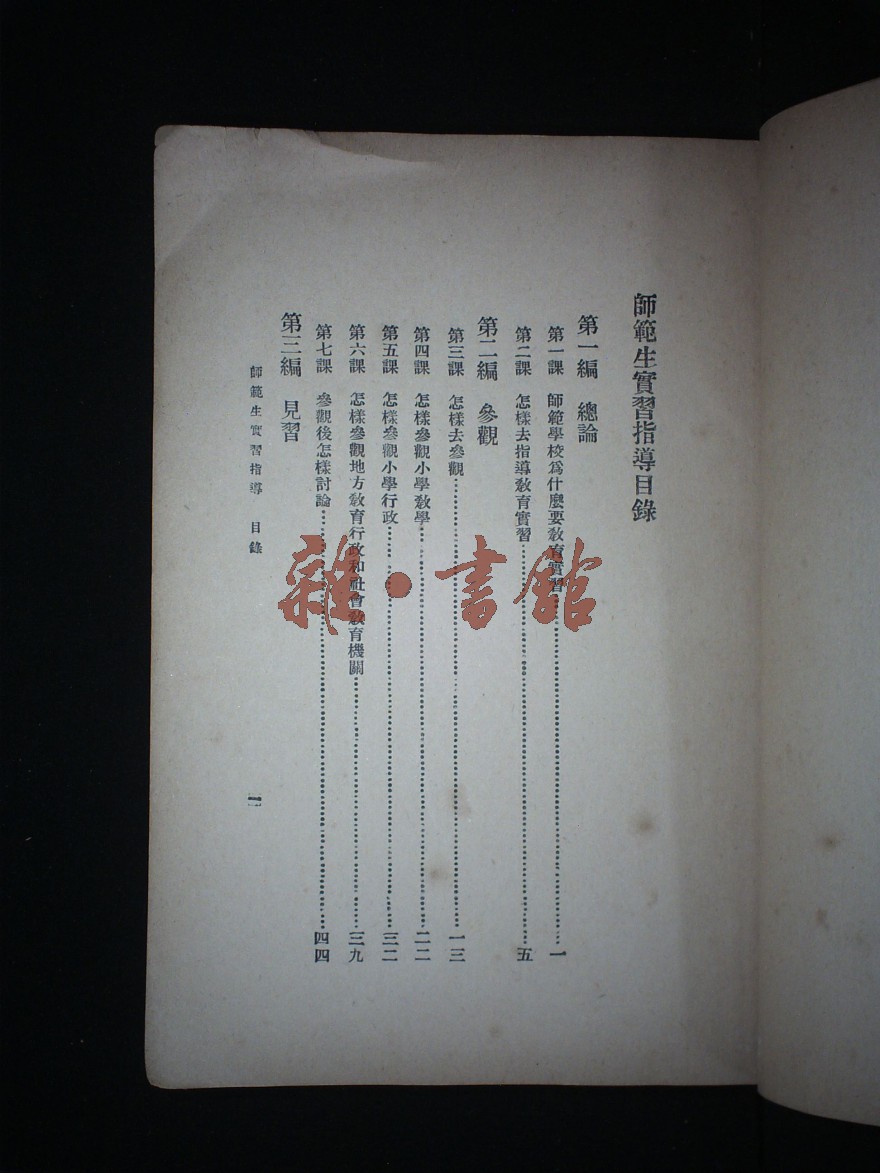 師範生實習指導目錄
第一編 總論
第一課 師範學校爲什麼要教育實習…………一
第二課 怎樣去指導教育實習…………五
第二編 參觀
第三課 怎樣去參觀…………一三
第四課 怎樣參觀小學教學…………二二
第五課 怎樣參觀小學行政…………三二
第六課 怎樣參觀地方教育行政和社會教育機關…………三九
第七課 參觀後怎樣討論…………四四
第三編 見習
師範生實習指導 目錄
一
雜·書館